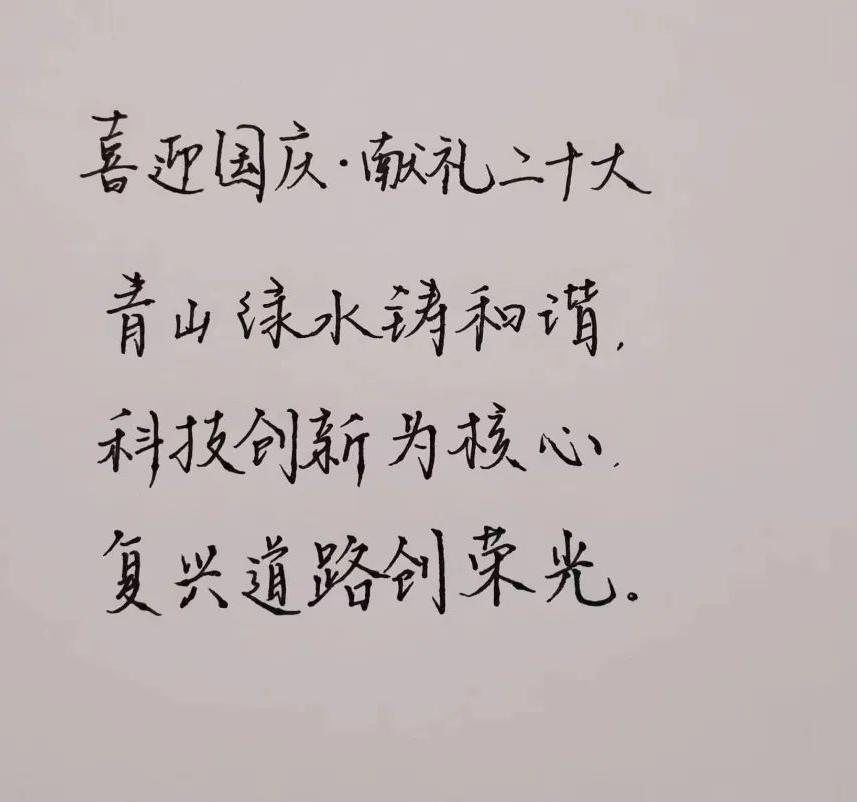 喜迎国庆·献礼二十大
青山绿水铸和谐,
科技创新为核心,
复兴道路创荣光。